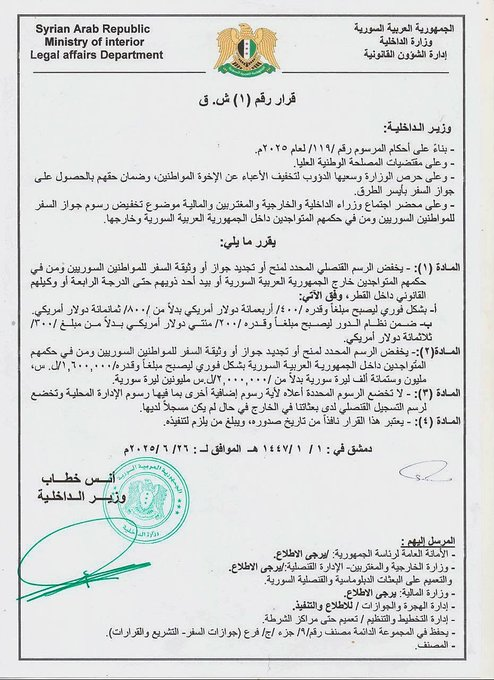 Syrian Arab Republic
Ministry of interior
Legal affairs Department
الجمهورية العربية السورية
وزارة الداخلية
إدارة الشؤون القانونية
قرار رقم (١) ش. ق
وزير الداخلية:
- بناءً على أحكام المرسوم رقم /١١٩/ لعام ٢٠٢٥م.
- وعلى مقتضيات المصلحة الوطنية العليا.
- وعلى حرص الوزارة وسعيها الدؤوب لتخفيف الأعباء عن الإخوة المواطنين، وضمان حقهم بالحصول على
جواز السفر بأيسر الطرق.
- وعلى محضر اجتماع وزراء الداخلية والخارجية والمغتربين والمالية موضوع تخفيض رسوم جواز السفر
للمواطنين السوريين ومن في حكمهم المتواجدين داخل الجمهورية العربية السورية وخارجها.
يقرر ما يلي:
المادة (١): - يخفض الرسم القنصلي المحدد لمنح أو تجديد جواز أو وثيقة السفر للمواطنين السوريين ومن في
حكمهم المتواجدين خارج الجمهورية العربية السورية أو بيد أحد ذويهم حتى الدرجة الرابعة أو وكيلهم
القانوني داخل القطر، وفق الآتي:
أ- بشكل فوري ليصبح مبلغاً وقدره /٤٠٠/ أربعمائة دولار أمريكي بدلاً من /٨٠٠/ ثمانمائة دولار أمريكي.
ب- ضمن نظام الدور ليصبح مبلغاً وقدره /٢٠٠/ مئتي دولار أمريكي بدلاً من مبلغ /٣٠٠/
ثلاثمائة دولار أمريكي.
المادة (٢): - يخفض الرسم المحدد لمنح أو تجديد جواز أو وثيقة السفر للمواطنين السوريين ومن في حكمهم
المتواجدين داخل الجمهورية العربية السورية بشكل فوري ليصبح مبلغاً وقدره/١,٦٠٠,٠٠٠/ل. س،
مليون وستمائة ألف ليرة سورية بدلاً من /٢,٠٠٠,٠٠٠/ل.س مليونين ليرة سورية.
المادة (٣): - لا تخضع الرسوم المحددة أعلاه لأية رسوم إضافية أخرى بما فيها رسوم الإدارة المحلية وتخضع
لرسم التسجيل القنصلي لدى بعثاتنا في الخارج في حال لم يكن مسجلاً لديها.
المادة (٤): - يعتبر هذا القرار نافذاً من تاريخ صدوره، ويبلغ من يلزم لتنفيذه.
دمشق في : ١ / ١ / ١٤٤٧ هـ الموافق لـ : ٢٦ / ٦ / ٢٠٢٥م
أنس خطاب
وزير الداخلية
الجمهورية العربية السورية
وزارة الداخلية
المرسل إليهم :
- الأمانة العامة لرئاسة الجمهورية: /يرجى الاطلاع.
- وزارة الخارجية والمغتربين- الإدارة القنصلية:/يرجى الاطلاع.
والتعميم على البعثات الدبلوماسية والقنصلية السورية.
- وزارة المالية: يرجى الاطلاع.
- إدارة الهجرة والجوازات / للاطلاع والتنفيذ.
- إدارة التخطيط والتنظيم / تعميم حتى مراكز الشرطة.
- يحفظ في المجموعة الدائمة مصنف رقم/٩/ جزء /ج/ فرع (جوازات السفر- التشريع والقرارات).
- المصنف.